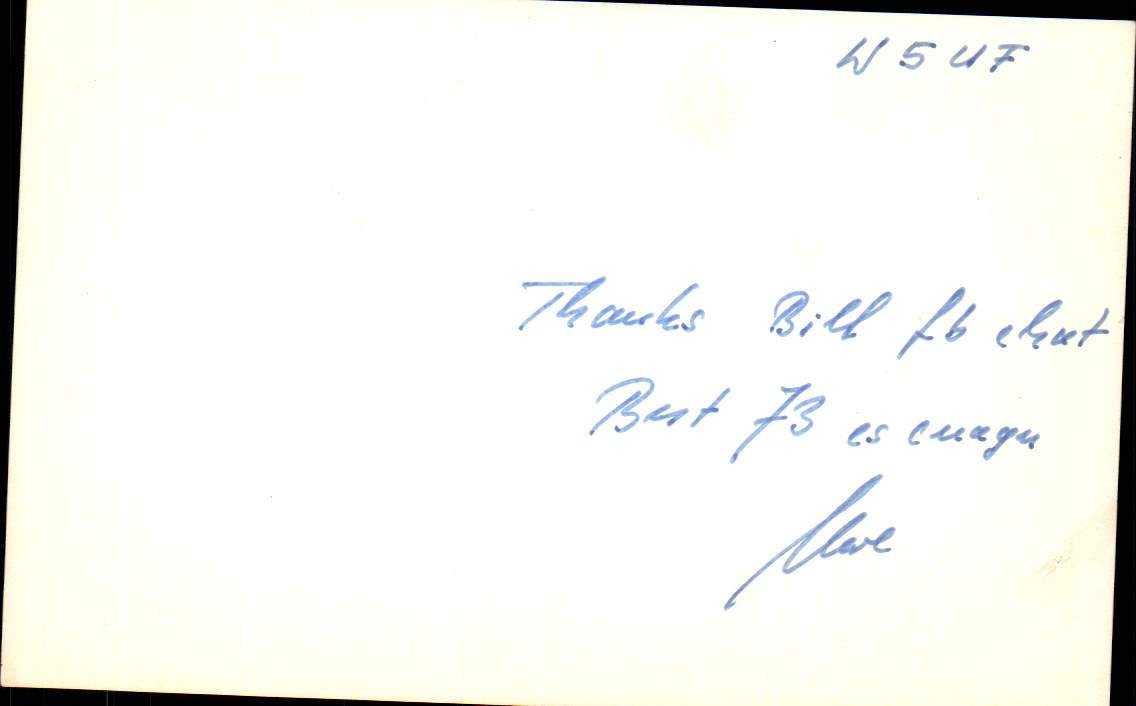 W5UF
Thanks Bill fb chat
Best 73 es cuagn
Uwe